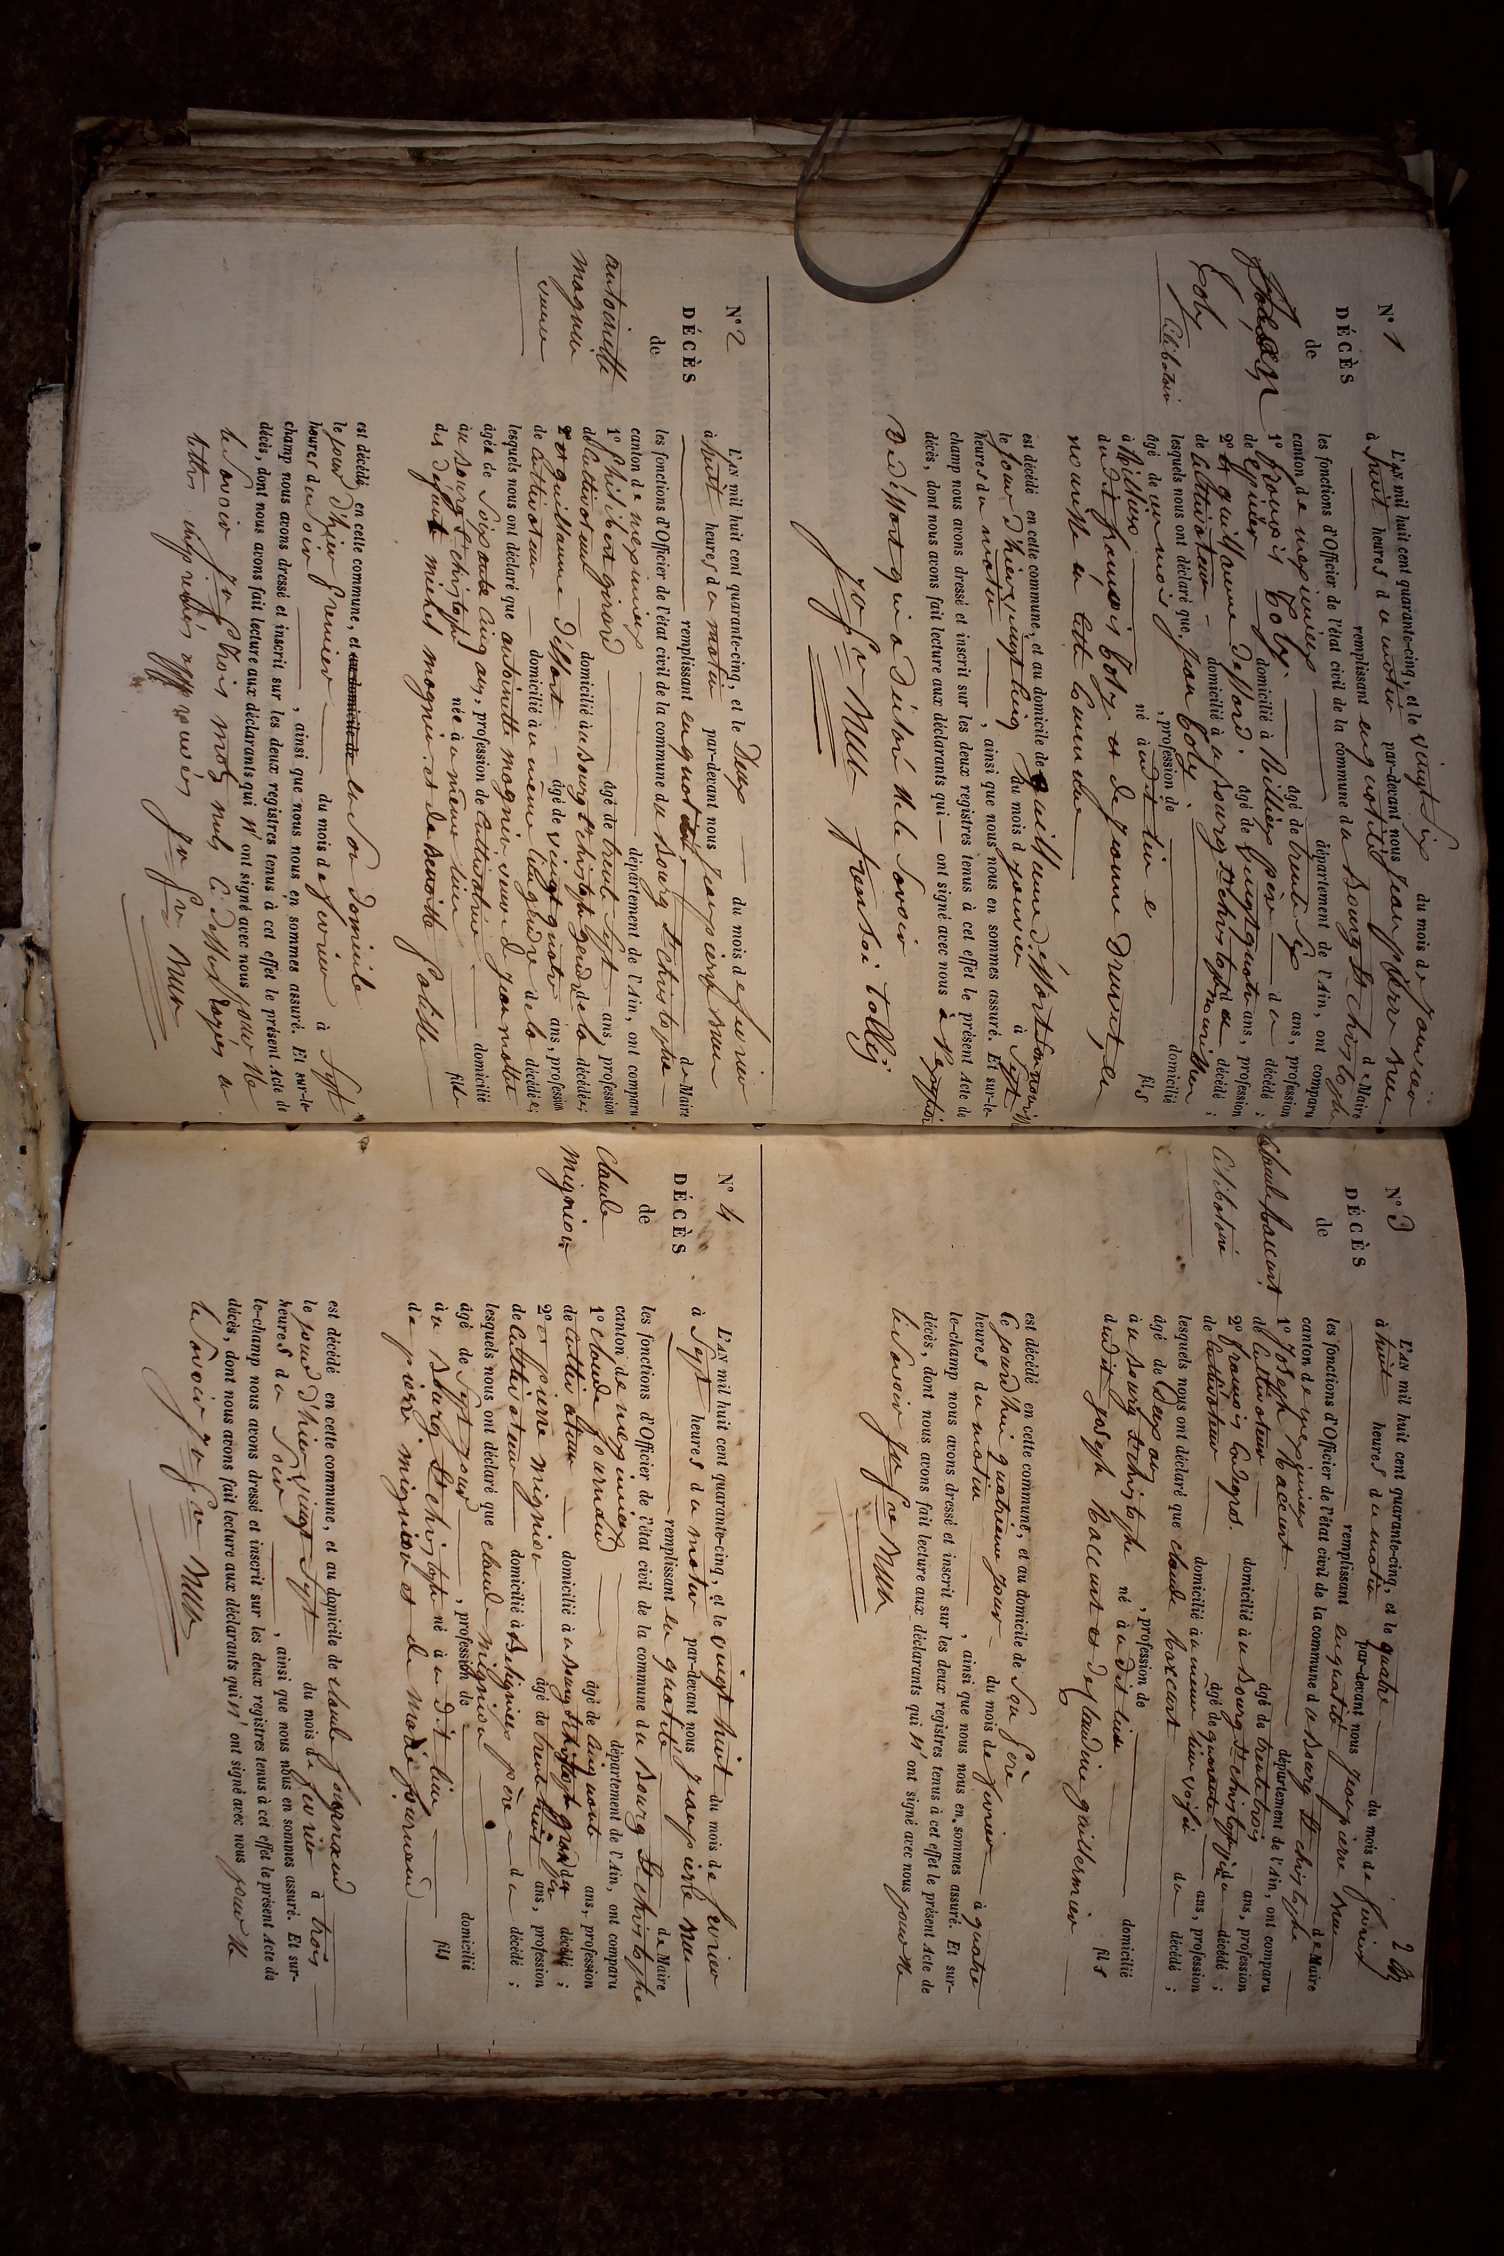 N° 1
DÉCÈS
de
Jean
Coly
Célibatair
L'AN mil huit cent quarante-cinq, et le vingt six du mois de janvier
à huit heures du matin par-devant nous jean pierre
remplissant en qualité de Maire
les fonctions d'Officier de l'état civil de la commune du Bourg St christophe
canton de meximieux département de l'Ain, ont comparu
1° francois Coly âgé de trente six ans, profession
de domicilié à père du décédé ;
2° et guillaume deffard âgé de vingt quatre ans, profession
de Cultivateur domicilié au bourg St christophe décédé ;
lesquels nous ont déclaré que jean Coly
âgé de un mois, profession de domicilié
à né audit lieu fils
dudit francois Coly et de jeanne
nourisse en cette commune
est décédé en cette commune, et au domicile de guillaume
le jour d'hier vingt cinq du mois de janvier à sept
heures du matin, ainsi que nous nous en sommes assuré. Et sur-le-
champ nous avons dressé et inscrit sur les deux registres tenus à cet effet le présent Acte de
décès, dont nous avons fait lecture aux déclarants qui ont signé avec nous
qui a déclaré ne le savoir
N° 2
DÉCÈS
de
antoinette
magnin
veuve
L'AN mil huit cent quarante-cinq, et le Deux du mois de fevrier
à huit heures du matin par-devant nous jean pierre
remplissant en qualité de Maire
les fonctions d'Officier de l'état civil de la commune du Bourg St christophe
canton de meximieux département de l'Ain, ont comparu
1° philibert girard âgé de trente sept ans, profession
de Cultivateur domicilié au Bourg St christophe gendre de la décédée ;
2° et guillaume âgé de vingt quatre ans, profession
de Cultivateur domicilié au même lieu gendre de la décédée ;
lesquels nous ont déclaré que antoinette magnin veuve de jean
âgée de soixante cinq ans, profession de Cultivatrice domicilié
au bourg St christophe née au même lieu fille
des defunts michel magnin et de benoitte
est décédé en cette commune, et au domicile de en son domicile
le jour d'hier premier du mois de fevrier à sept
heures du soir, ainsi que nous nous en sommes assuré. Et sur-le-
champ nous avons dressé et inscrit sur les deux registres tenus à cet effet le présent Acte de
décès, dont nous avons fait lecture aux déclarants qui n'ont signé avec nous pour ne
le savoir trois mots nuls ci dessus rayés et
lettres approuvés
2
N° 3
DÉCÈS
de
Claude
Célibataire
L'AN mil huit cent quarante-cinq, et le quatre du mois de fevrier
à huit heures du matin par-devant nous jean pierre
remplissant en qualité de Maire
les fonctions d'Officier de l'état civil de la commune du Bourg St christophe
canton de meximieux département de l'Ain, ont comparu
1° joseph âgé de trente trois ans, profession
de Cultivateur domicilié au Bourg St christophe du décédé ;
2° francois âgé de quarante ans, profession
de Cultivateur domicilié au même lieu voisin du décédé ;
lesquels nous ont déclaré que claude
âgé de deux ans, profession de domicilié
au bourg St christophe né audit lieu fils
dudit joseph et de claudine guillermier
est décédé en cette commune, et au domicile de son père
ce jourd'hui quatrieme jour du mois de fevrier à quatre
heures du matin, ainsi que nous nous en sommes assuré. Et sur-
le-champ nous avons dressé et inscrit sur les deux registres tenus à cet effet le présent Acte de
décès, dont nous avons fait lecture aux déclarants qui n'ont signé avec nous pour ne
le savoir
N° 4
DÉCÈS
de
Claude
mignion
L'AN mil huit cent quarante-cinq, et le vingt huit du mois de fevrier
à sept heures du matin par-devant nous jean pierre
remplissant en qualité de Maire
les fonctions d'Officier de l'état civil de la commune du Bourg St christophe
canton de meximieux département de l'Ain, ont comparu
1° claude journaud âgé de cinquante ans, profession
de cultivateur domicilié au bourg St christophe décédé ;
2° et pierre mignion âgé de trente huit ans, profession
de Cultivateur domicilié à père du décédé ;
lesquels nous ont déclaré que claude mignion
âgé de sept jours, profession de domicilié
au Bourg St christophe né audit lieu fils
de pierre mignion et de marie journaud
est décédé en cette commune, et au domicile de claude journaud
le jour d'hier vingt sept du mois de fevrier à trois
heures du soir, ainsi que nous nous en sommes assuré. Et sur-
le-champ nous avons dressé et inscrit sur les deux registres tenus à cet effet le présent Acte de
décès, dont nous avons fait lecture aux déclarants qui n'ont signé avec nous pour ne
le savoir